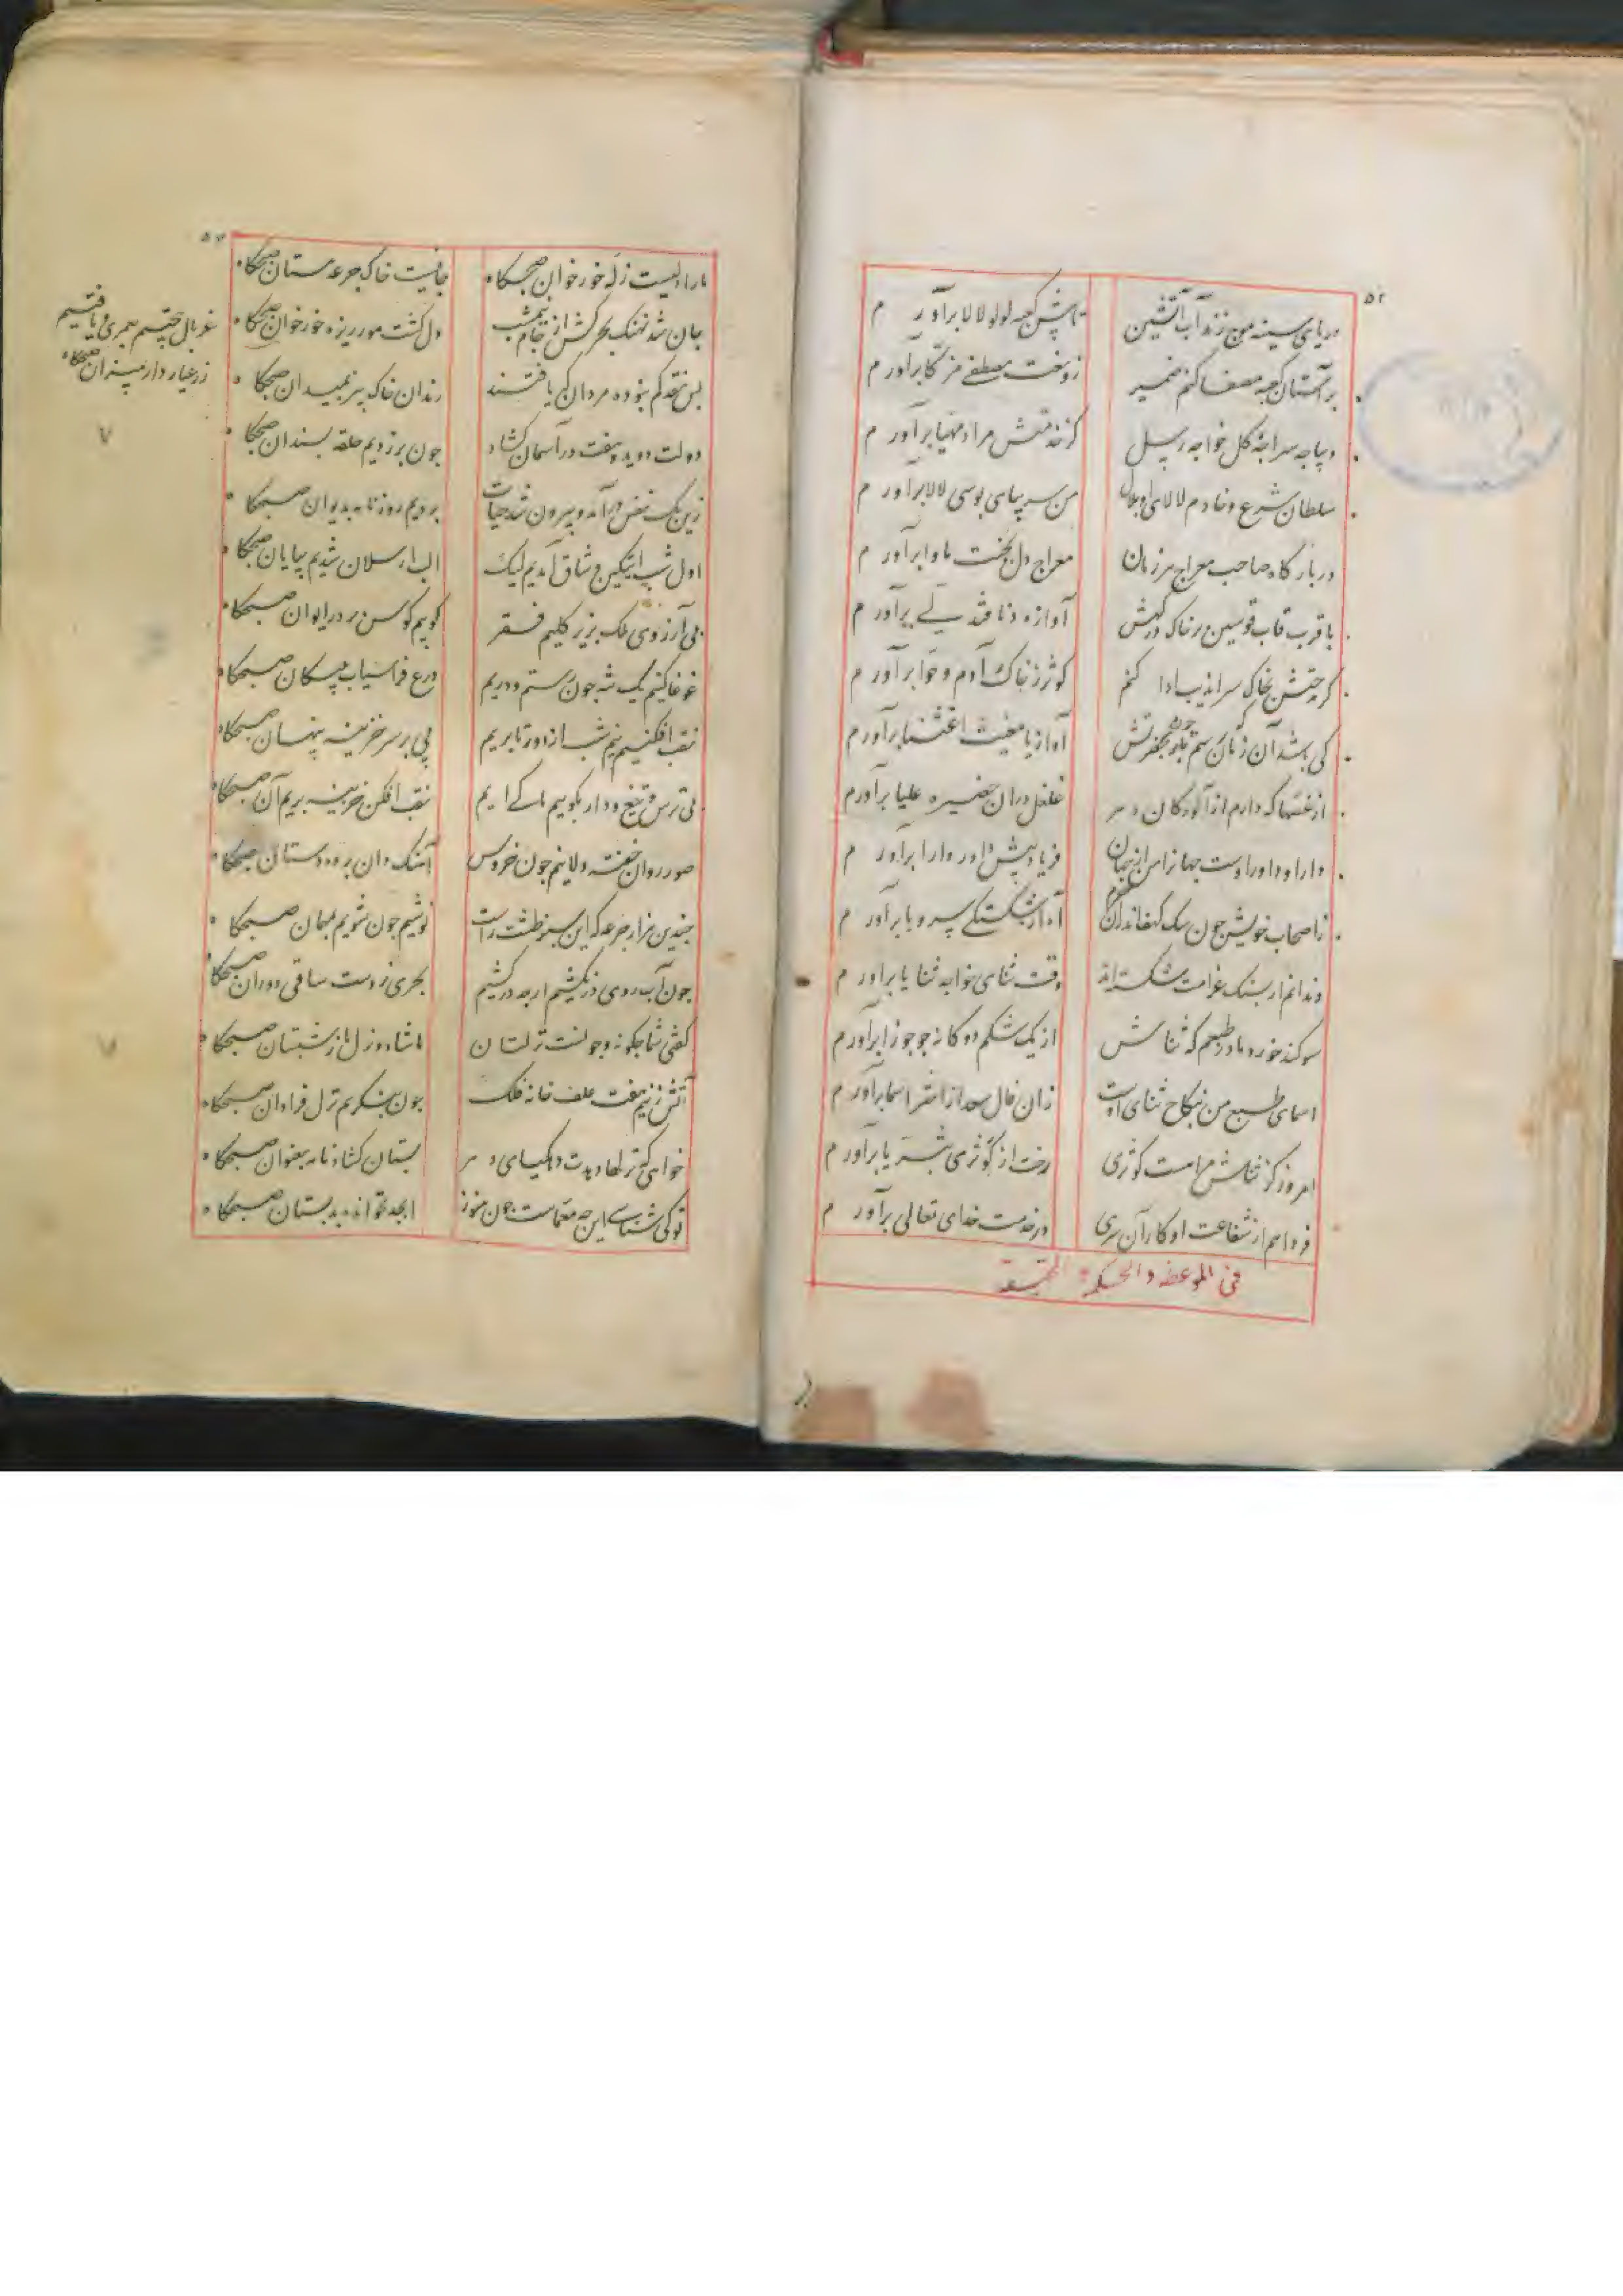 ۵۲
دریای سینه موج زند آب آتشین تا پیش کعبه لولو لالا برآورم
بر آستان کعبه مصفا کنم ضمیر زو نعت مصطفی مزکا برآورم
دیباجه سراجه کل خواجه رسل کز خدمتش مراد مهیا برآورم
سلطان شرع و خادم لالای او بلال من سر بپای بوسی لالا برآورم
در بارکاه صاحب معراج هر زمان معراج دل بجنت ماوا برآورم
با قرب قاب قوسین بر خاک درکهش آوازه دنا فتدلی برآورم
کر جتش بخاک سراندیب ادا کنم کوثر ز خاک آدم و حوا برآورم
کی باشد آن زمان که رسم باز حضرتش آواز یا مغیث اغثنا برآورم
از غصها که دارم از آلودکان دهر غلغل در ان حضیره علیا برآورم
دارا و داور اوست جهانرا من از جهان فریاد پیش داور دارا برآورم
ز اصحاب خویش جون سک کهف اندران حرم آه از شکستکی سر و پا برآورم
دندانم ار بسنک غرامت شکسته اند وقت ثنای خواجه ثنایا برآورم
سوکند خورد مادر طبعم که در ثناش از یک شکم دو کانه جو جوزا برآورم
اسمای طبع من بنکاح ثنای اوست زان فال سعد از اختر اسما برآورم
امروز کز ثناش مرا هست کوثری رخت از کوثری بثریا برآورم
فردا هم از شفاعت او کار آن سری در خدمت خدای تعالی برآورم
فی الموعظه والحکمه
۵۳
ما را دلیست زله خور خوان صبحکاه جانیست خاک جرعه مستان صبحکاه
جان شد نهنک بحرکش از جام نیمشب دل کشت مور ریزه خور خوان صبحکاه
غربال چشم همی یافتیم
زر عیار دار میزان صبحکاه
بس نقد کم بوده مردان که یافتند رندان خاک بیز بمیدان صبحکاه
دولت دوید و هفت در آسمان کشاد جون بر زدیم حلقه سندان صبحکاه
زین یک نفس درآمد و بیرون شد حیات بردیم روزنامه بدیوان صبحکاه
اول شب ایتکین وشاق آمدیم لیک الب ارسلان شدیم بپایان صبحکاه
بی آرزوی ملک بزیر کلیم فقر کوبیم کوس بر در ایوان صبحکاه
غوغا کنیم یک تنه جون رستم و دریم درع فراسیاب بپیکان صبحکاه
نقب افکنیم نیم شب از دور تا بریم پی بر سر خزینه پنهان صبحکاه
بی ترس تیغ و دار بکوییم ما که ایم نقب افکن خزینه بریم آن صبحکاه
صور روان خفته دلانیم جون خروس آهنک دان پرده دستان صبحکاه
جندین هزار جرعه که این سبز طشت راست نوشیم جون شویم مهمان صبحکاه
جون آب روی در نکشیم ار جه در کشیم بحری ز دست ساقی دوران صبحکاه
کفتی شما جکونه و جونست نزلتان ما شاد و نزل ما ز شبستان صبحکاه
آتش زنیم هفت علف خانه فلک جون بنکریم نزل فراوان صبحکاه
خواهی که نزل ما دهدت ده کیای دهر بستان کشاد نامه بعنوان صبحکاه
تو کی شناسی این جه معماست جون هنوز ابجد نخوانده بدبستان صبحکاه